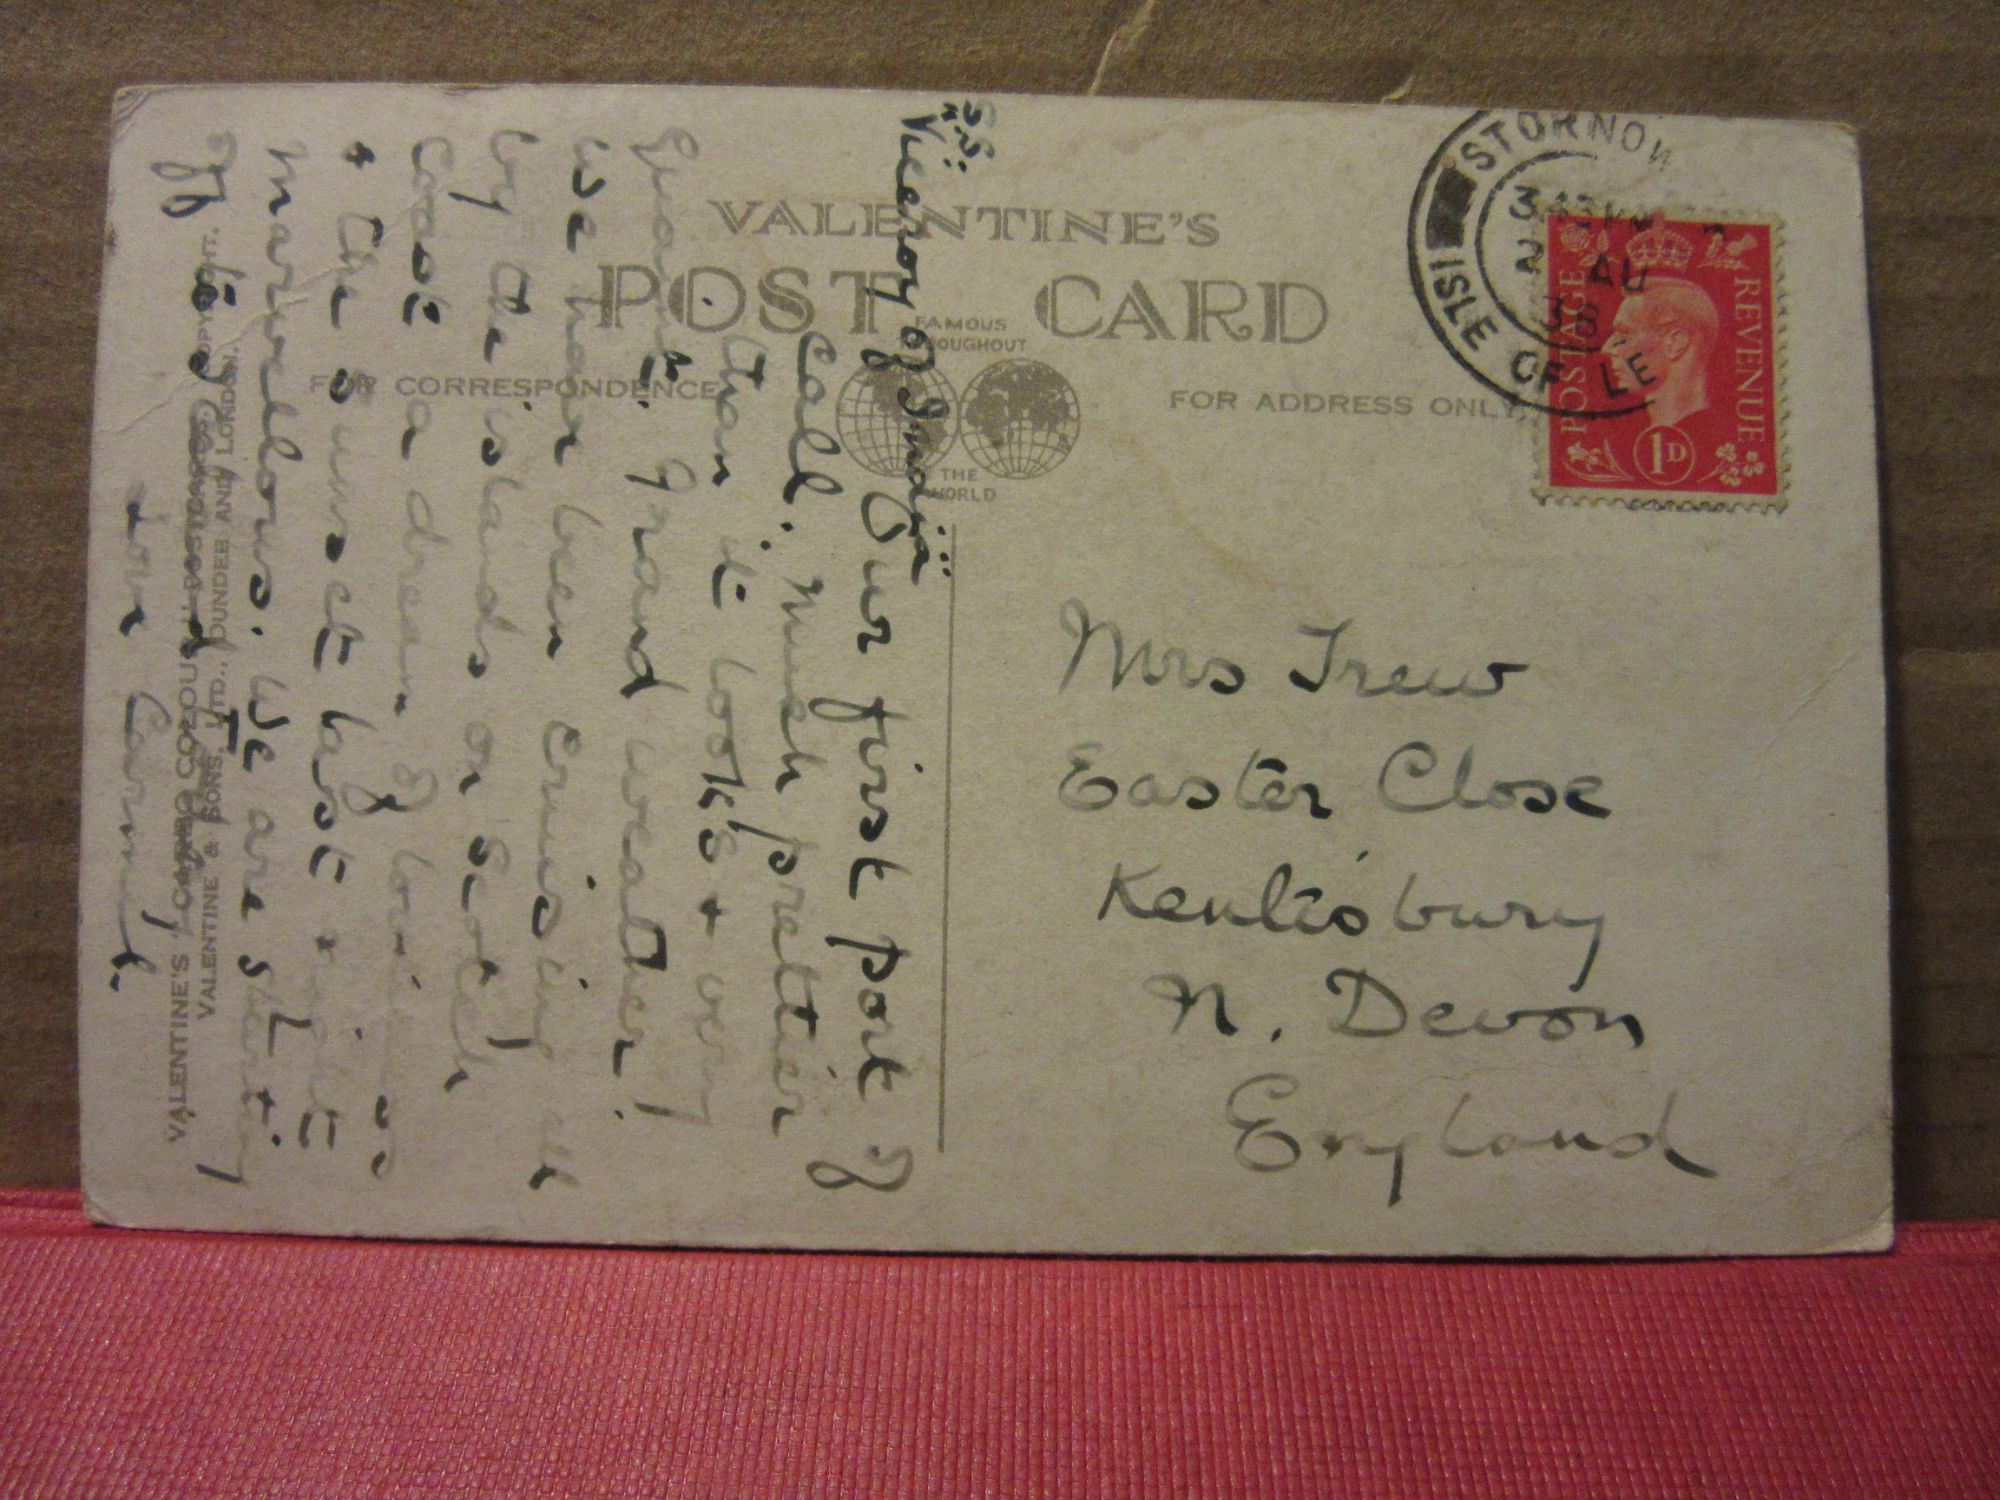 VALENTINE'S
POST CARD
FAMOUS
THROUGHOUT
THE
WORLD
FOR CORRESPONDENCE
FOR ADDRESS ONLY
STORNOW
ISLE OF LE
AU
38
POSTAGE
REVENUE
1D
S.S.
Viceroy of India
Our first port of
Call. Much prettier
than it looks + very
quaint. Grand weather!
We have been cruising all
by the islands on Scotch
coast a dream of loveliness
+ the sunset last night
marvellous. We are
Love
Mrs Trew
Easter Close
Kentisbury
N. Devon
England
VALENTINE'S "CARBO COLOUR" POSTCARDS.
VALENTINE & SONS, LTD., DUNDEE AND LONDON.
COPYRIGHT.